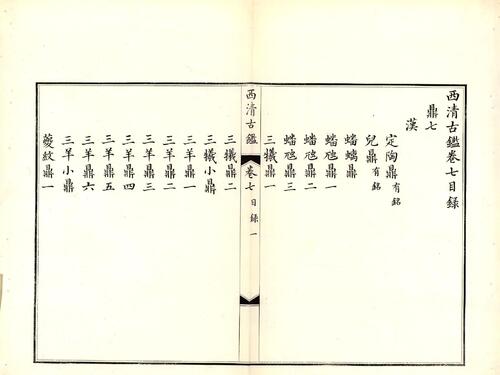 西清古鑑卷七目錄
鼎七
漢
定陶鼎有銘
兒鼎有銘
蟠螭鼎
蟠虺鼎一
蟠虺鼎二
蟠虺鼎三
三犧鼎一
西清古鑑 卷七目錄 一
三犧鼎二
三犧小鼎
三羊鼎一
三羊鼎二
三羊鼎三
三羊鼎四
三羊鼎五
三羊鼎六
三羊小鼎
夔紋鼎一